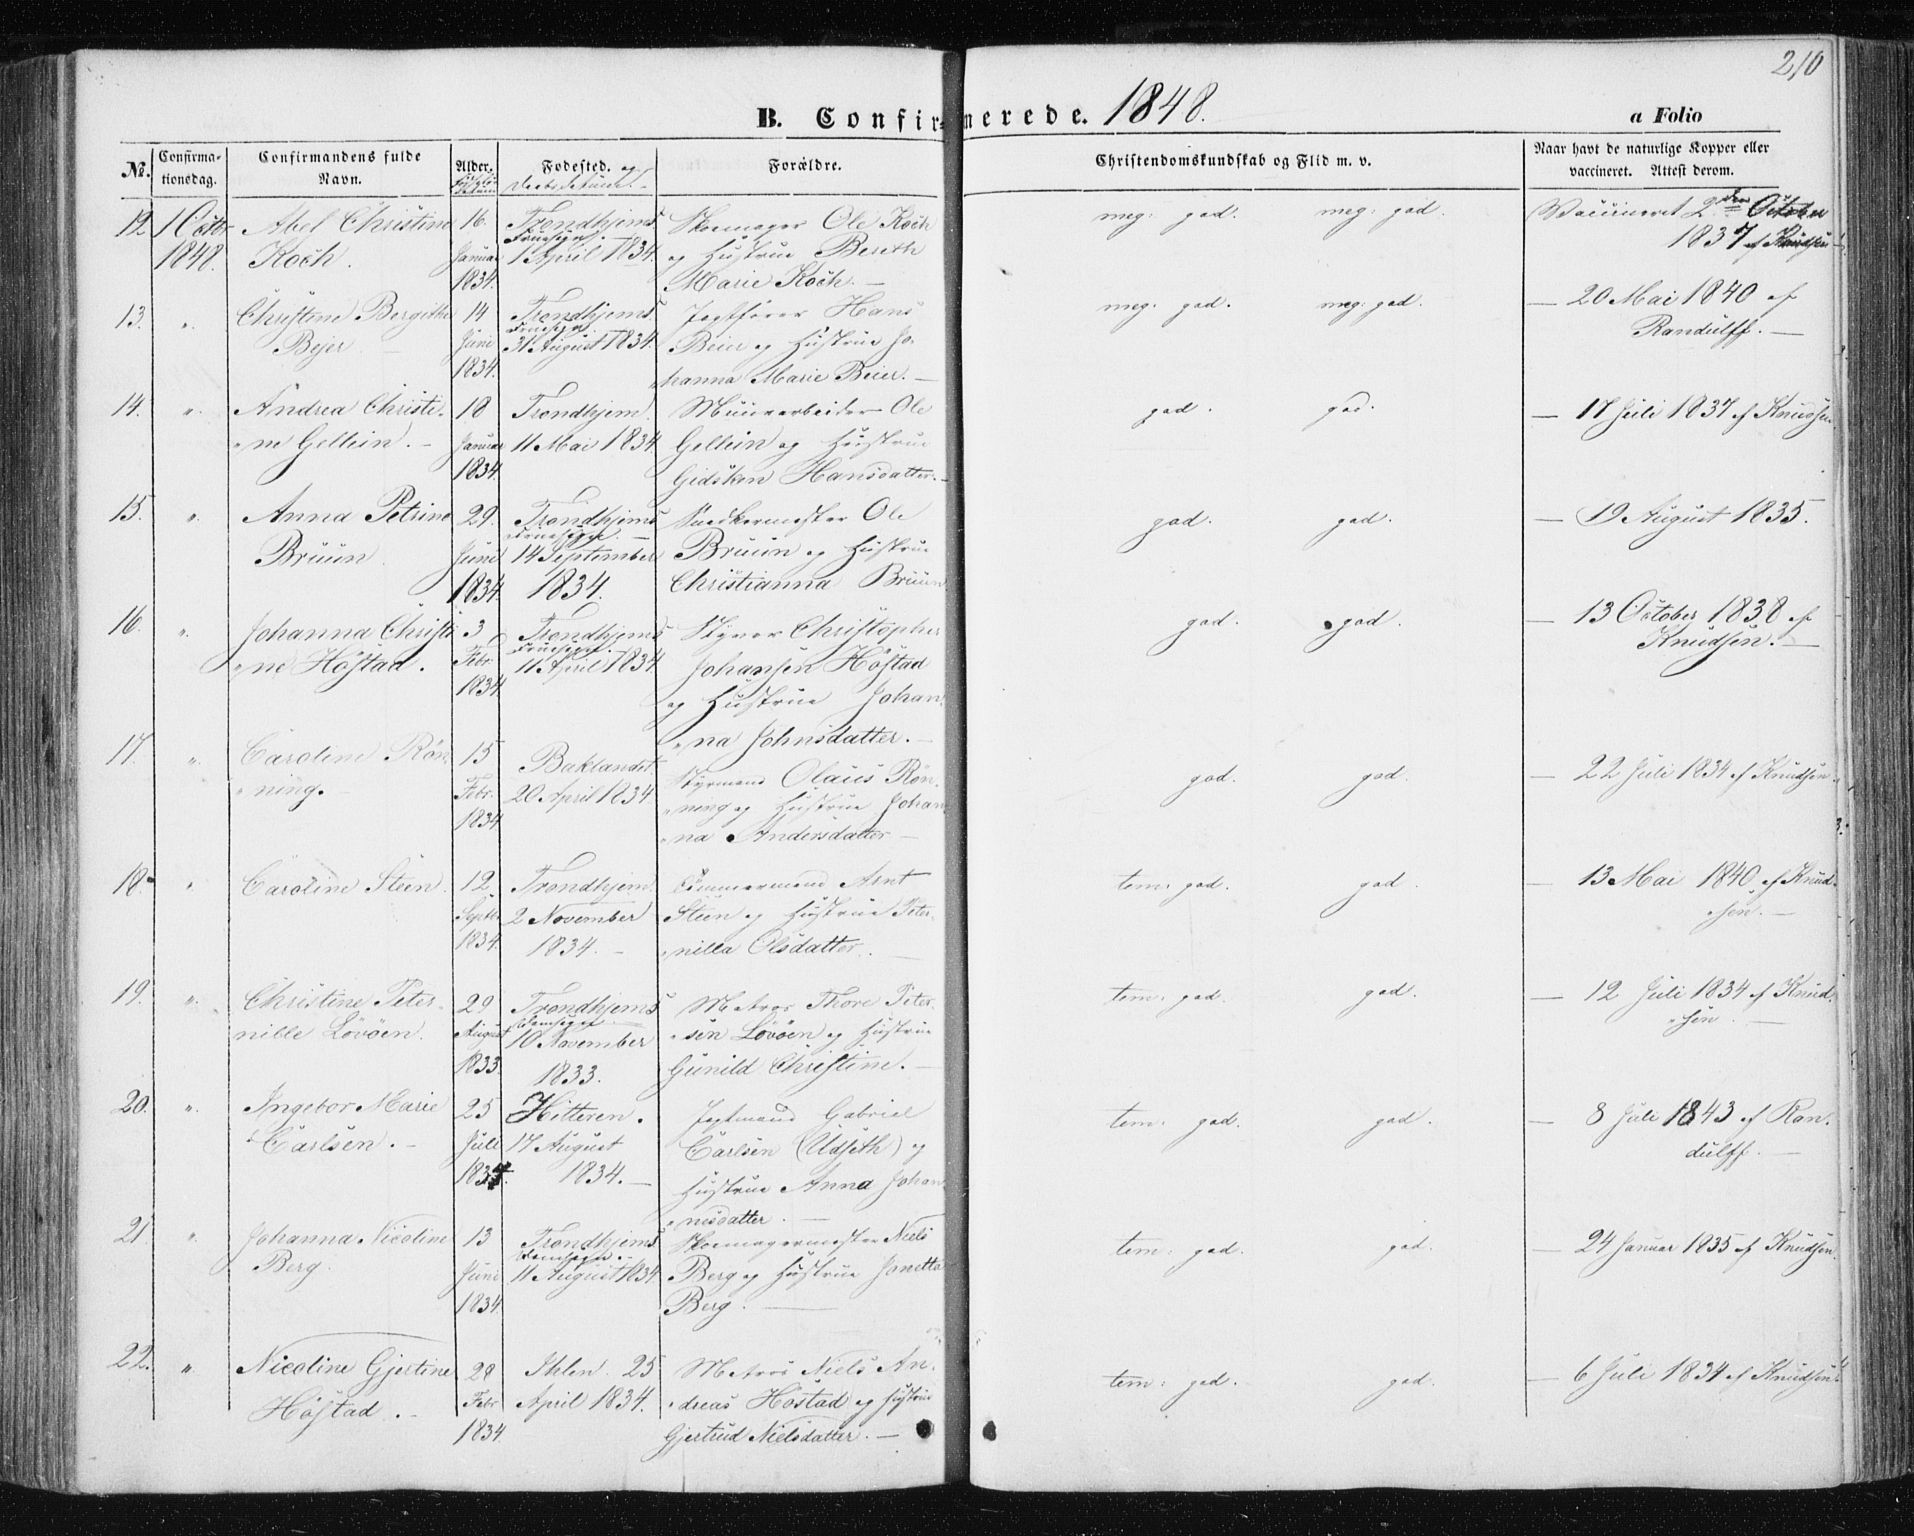 210
B. Confirmerede. 1848.
a Folio
No.
Confirmationsdag.
Confirmandens fulde Navn.
Alder.
Fødested. og Daabsdatum
Forældre.
Christendomskundskab og Flid m. v.
Naar havt de naturlige Kopper eller vaccineret. Attest derom.
12. 1 Octbr Abel Christine 16. Trondhjems Skoemager Ole Koch meg: god. meg: god. Vaccineret 2den October
1848. Koch. Januar Fruesogn. 1 April 1834. og Hustrue Bereth 1837 af Knudsen
1834. Marie Koch. —
13. „ Christine Bergithe 14 Trondhjems Jagtfører Hans meg: god. meg: god. — 20 Mai 1840 af
Bejer — Juni Fruesogn. 31 August 1834. Beier og Hustrue Jo- Randulff. —
1834. „hanna Marie Beier. —
14. „ Andrea Christi- 18 Trondhjem. Muurarbeider Ole god. god. — 17 Juli 1837 af Knudsen.
„ne Gellein. — Januar 11 Mai 1834 Gellein og Hustrue
1834. Gidsken Hansdatter. —
15. „ Anna Petrine 29. Trondhjems Snedkermester Ole god. god. — 19 August 1835.
Bruun. Juni Fruesogn. — 14 September Bruun og Hustrue
1834. 1834. Christianna Bruun
16. „ Johanna Christi 3 Trondhjems Styrer Christopher god. god. — 13 October 1838 af
„ne Höstad. Febr. Fruesogn. 11 April 1834 Johansen Höstad Knudsen. —
1834. og Hustrue Johan-
„na Johnsdatter. —
17. „ Caroline Rön- 15 Baklandet Styrmand Olaus Rön- god. god. — 22 Juli 1834 af Knudsen.
„ning. — Febr. 20 April 1834 „ning og Hustrue Johan-
1834 „na Andersdatter —
18. „ Caroline Steen. 12. Trondhjem. Tömmermand Arnt tem: god. god. — 13 Mai 1840 af Knud-
Septbr 2 November Steen og Hustrue Peter-
„sen. —
1834. 1834. — „nilla Olsdatter.
19. „ Christine Peter- 29 Trondhjems Matros Thore Peter- tem: god. god. — 12 Juli 1834 af Knud-
nille Lövöen. August Domsogn. 10 November „sen Lövöen og Hustrue „sen. —
1833. 1833. Gunild Christine. —
20. „ Ingebor Marie 25 Hitteren. Jagtmand Gabriel tem: god. god. — 8 Juli 1843 af Ran-
Carlsen. — Juli 17 August Carlsen (Udseth) og dulff. —
1834. 1834. — Hustrue Anna Johan-
„nesdatter. —
21 „ Johanna Nicoline 13 Trondhjems Skoemagermester Niels tem: god. god. — 24 Januar 1835 af Knudsen.
Berg. Juni Domsogn. — 11 August 1834. Berg og Hustrue Janetta
1834. Berg. —
22. „ Nicoline Gjertine 28 Ihlen. 25 Matros Niels An- tem: god. god. — 6 Juli 1834 af Knudsen
Höstad. — Febr. April 1834. „dreas Höstad og Hustrue
1834. Gjertrud Nielsdatter. —